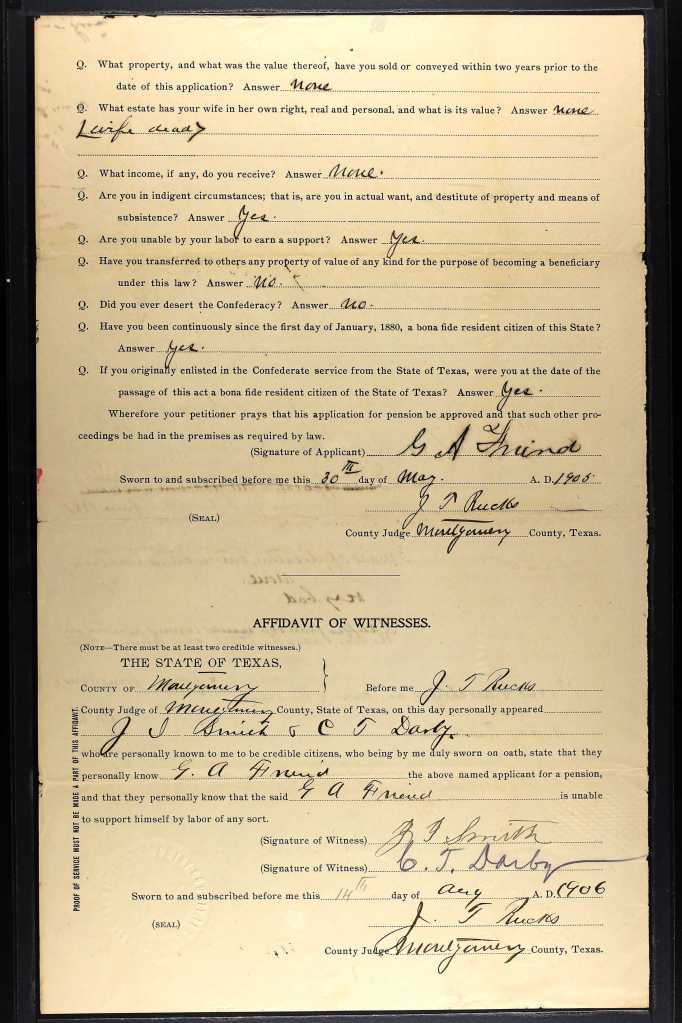 Q. What property, and what was the value thereof, have you sold or conveyed within two years prior to the
date of this application? Answer none
Q. What estate has your wife in her own right, real and personal, and what is its value? Answer none
(wife dead)
Q. What income, if any, do you receive? Answer None.
Q. Are you in indigent circumstances; that is, are you in actual want, and destitute of property and means of
subsistence? Answer Yes.
Q. Are you unable by your labor to earn a support? Answer Yes.
Q. Have you transferred to others any property of value of any kind for the purpose of becoming a beneficiary
under this law? Answer No.
Q. Did you ever desert the Confederacy? Answer No.
Q. Have you been continuously since the first day of January, 1880, a bona fide resident citizen of this State?
Answer Yes.
Q. If you originally enlisted in the Confederate service from the State of Texas, were you at the date of the
passage of this act a bona fide resident citizen of the State of Texas? Answer Yes.
Wherefore your petitioner prays that his application for pension be approved and that such other pro-
ceedings be had in the premises as required by law.
(Signature of Applicant) G A Friend
Sworn to and subscribed before me this 30th day of May. A. D. 1906
J T Rucks
(SEAL)
County Judge Montgomery County, Texas.
AFFIDAVIT OF WITNESSES.
(NOTE—There must be at least two credible witnesses.)
THE STATE OF TEXAS,
COUNTY OF Montgomery } Before me J. T Rucks
County Judge of Montgomery County, State of Texas, on this day personally appeared
J I Smith & C T Darby.
who are personally known to me to be credible citizens, who being by me duly sworn on oath, state that they
personally know G. A Friend the above named applicant for a pension,
and that they personally know that the said G A Friend is unable
to support himself by labor of any sort.
(Signature of Witness) J I Smith
(Signature of Witness) C. T. Darby
Sworn to and subscribed before me this 14th day of Aug A. D. 1906
J. T Rucks
(SEAL)
County Judge Montgomery County, Texas.
PROOF OF SERVICE MUST NOT BE MADE A PART OF THIS AFFIDAVIT.